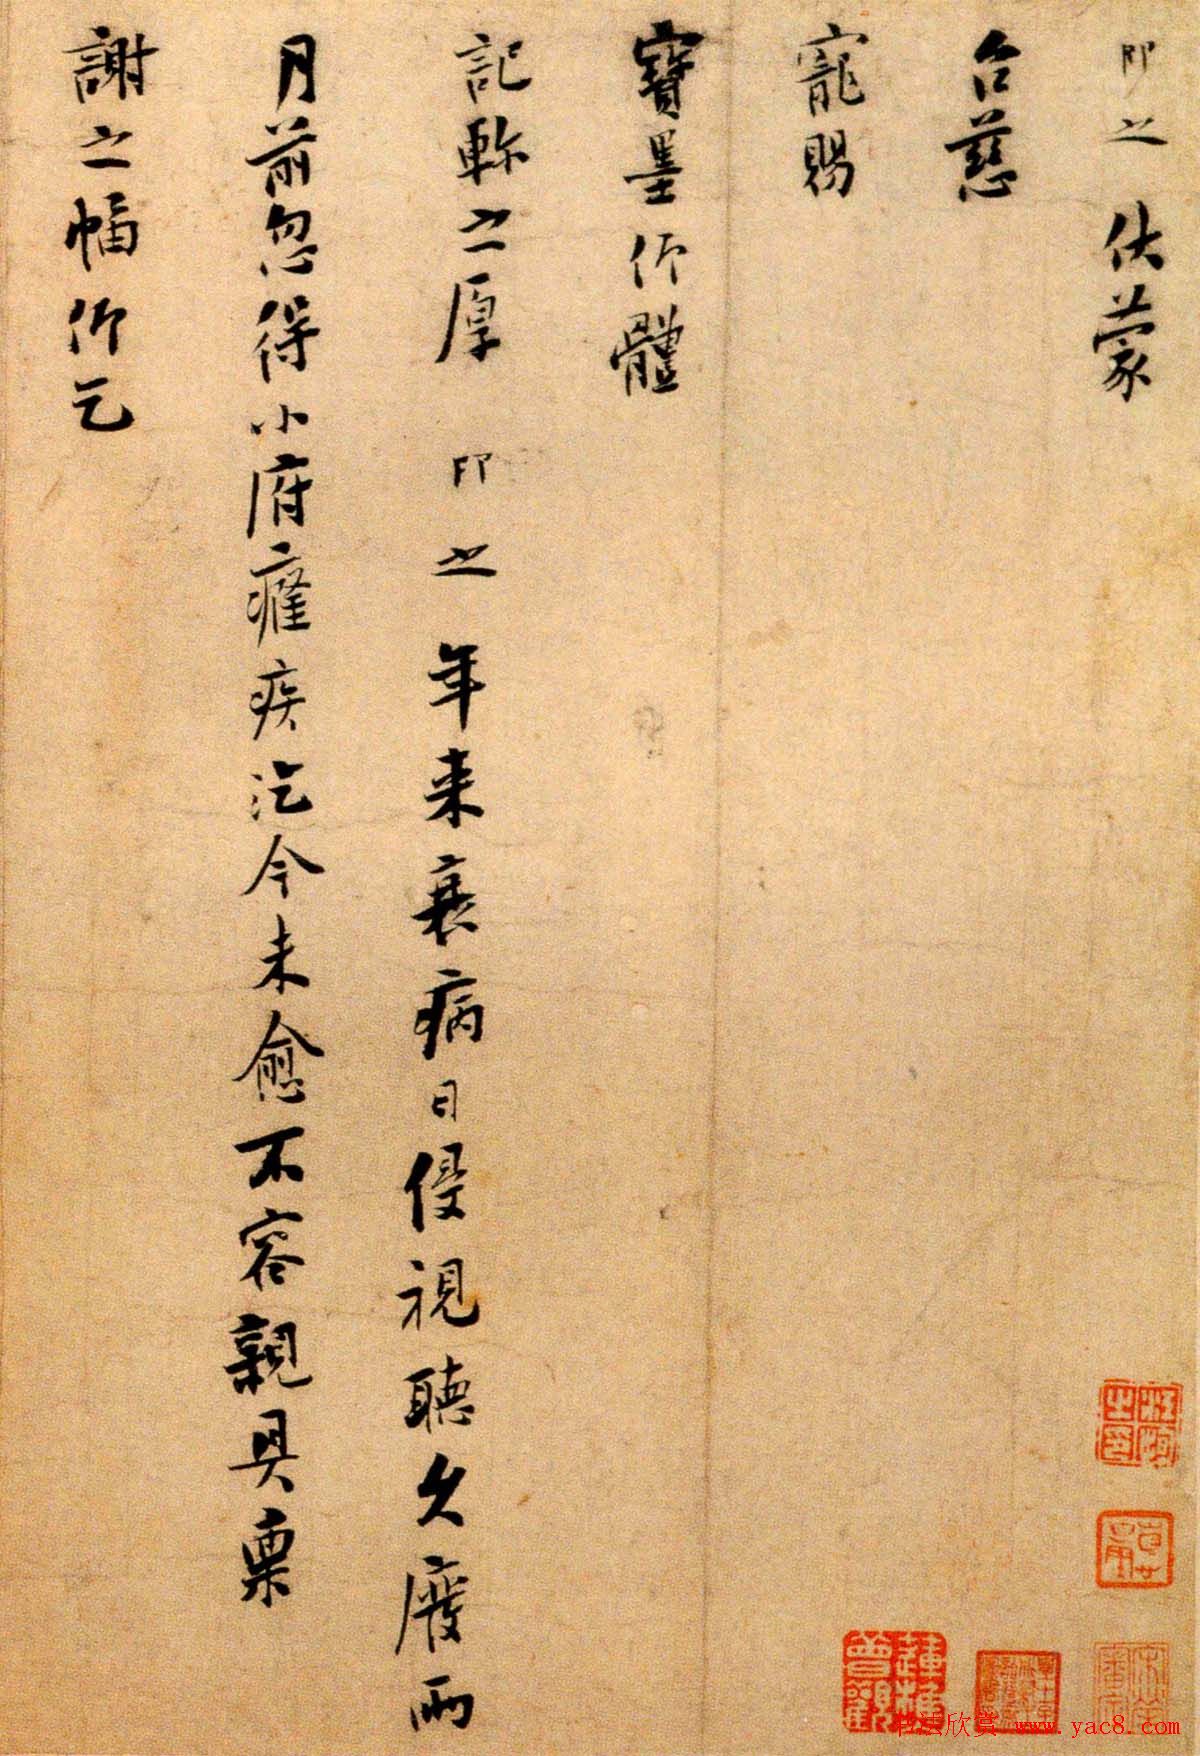 即之伏蒙
台慈
寵賜
寶墨仰體
記軫之厚即之年来衰病日侵視聽久廢兩
月前忽得小府癰疾汔今未愈不容親具稟
謝之幅仰乞
書法欣赏 www.yac8.com